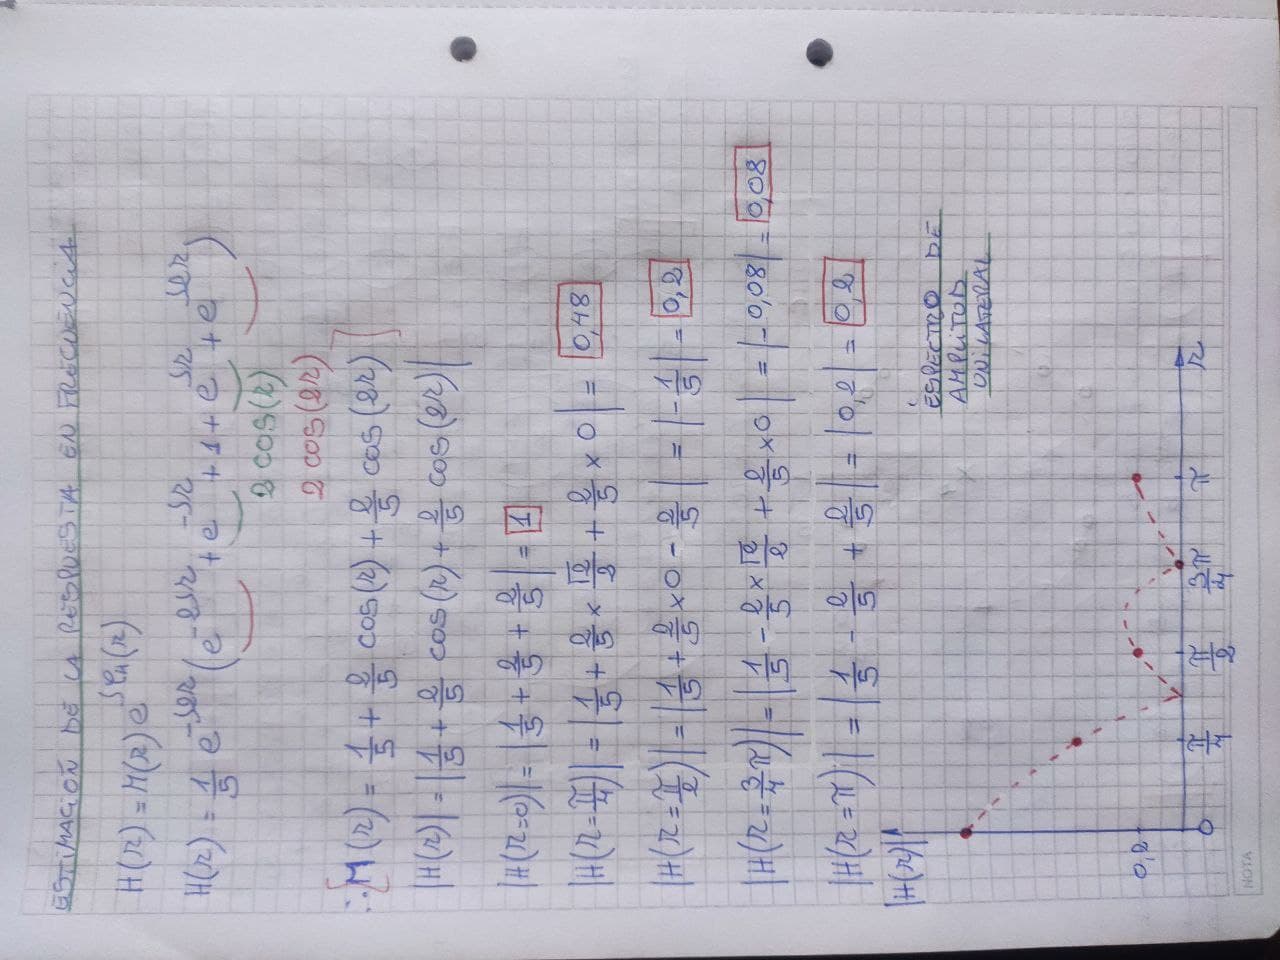 ESTIMACIÓN DE LA RESPUESTA EN FRECUENCIA
H(r) = M(r) e^{Jφ_H(r)}
H(r) = 1/5 e^{-J2r} (e^{-2Jr} + e^{-Jr} + 1 + e^{Jr} + e^{J2r})
2 cos(r)
2 cos(2r)
∴ [M(r) = 1/5 + 2/5 cos(r) + 2/5 cos(2r)]
|H(r)| = |1/5 + 2/5 cos(r) + 2/5 cos(2r)|
|H(r=0)| = |1/5 + 2/5 + 2/5| = 1
|H(r=π/4)| = |1/5 + 2/5 × √2/2 + 2/5 × 0| = 0,48
|H(r=π/2)| = |1/5 + 2/5 × 0 - 2/5| = |-1/5| = 0,2
|H(r=3/4 π)| = |1/5 - 2/5 × √2/2 + 2/5 × 0| = |-0,08| = 0,08
|H(r=π)| = |1/5 - 2/5 + 2/5| = |0,2| = 0,2
|H(r)|
ESPECTRO DE
AMPLITUD
UNILATERAL
0,2
0 π/4 π/2 3/4 π π r
NOTA